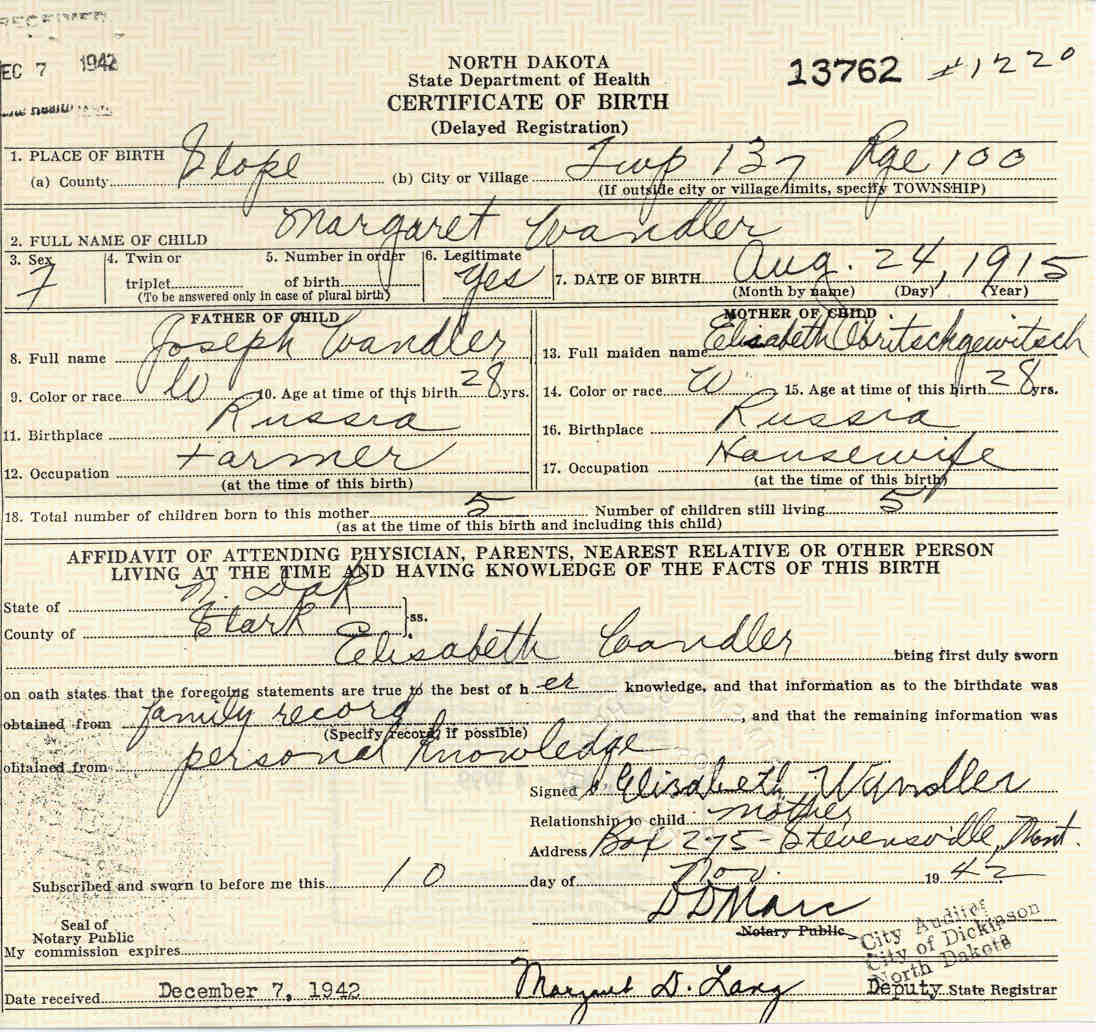 DEC 7 1942
NORTH DAKOTA
State Department of Health
CERTIFICATE OF BIRTH
(Delayed Registration)
13762 #1220
1. PLACE OF BIRTH
(a) County Slope (b) City or Village Twp 137 Rge 100
(If outside city or village limits, specify TOWNSHIP)
2. FULL NAME OF CHILD Margaret Wandler
3. Sex F 4. Twin or triplet 5. Number in order of birth 6. Legitimate Yes 7. DATE OF BIRTH Aug. 24, 1915
(To be answered only in case of plural birth) (Month by name) (Day) (Year)
FATHER OF CHILD
8. Full name Joseph Wandler
9. Color or race W 10. Age at time of this birth 28 yrs.
11. Birthplace Russia
12. Occupation Farmer
(at the time of this birth)
MOTHER OF CHILD
13. Full maiden name Elisabeth Obritschgewitsch
14. Color or race W 15. Age at time of this birth 28 yrs.
16. Birthplace Russia
17. Occupation Housewife
(at the time of this birth)
18. Total number of children born to this mother 5 Number of children still living 5
(as at the time of this birth and including this child)
AFFIDAVIT OF ATTENDING PHYSICIAN, PARENTS, NEAREST RELATIVE OR OTHER PERSON
LIVING AT THE TIME AND HAVING KNOWLEDGE OF THE FACTS OF THIS BIRTH
State of N. Dak
County of Stark ss.
Elisabeth Wandler being first duly sworn
on oath states that the foregoing statements are true to the best of her knowledge, and that information as to the birthdate was
obtained from family record, and that the remaining information was
(Specify record, if possible)
obtained from personal knowledge
Signed Elisabeth Wandler
Relationship to child mother
Address Box 275 - Stevensville, Mont.
Subscribed and sworn to before me this 10 day of Nov. 1942
D D Marc
Notary Public
City Auditor
City of Dickinson
North Dakota
Seal of
Notary Public
My commission expires
Date received December 7, 1942 Margaret D. Lang Deputy State Registrar